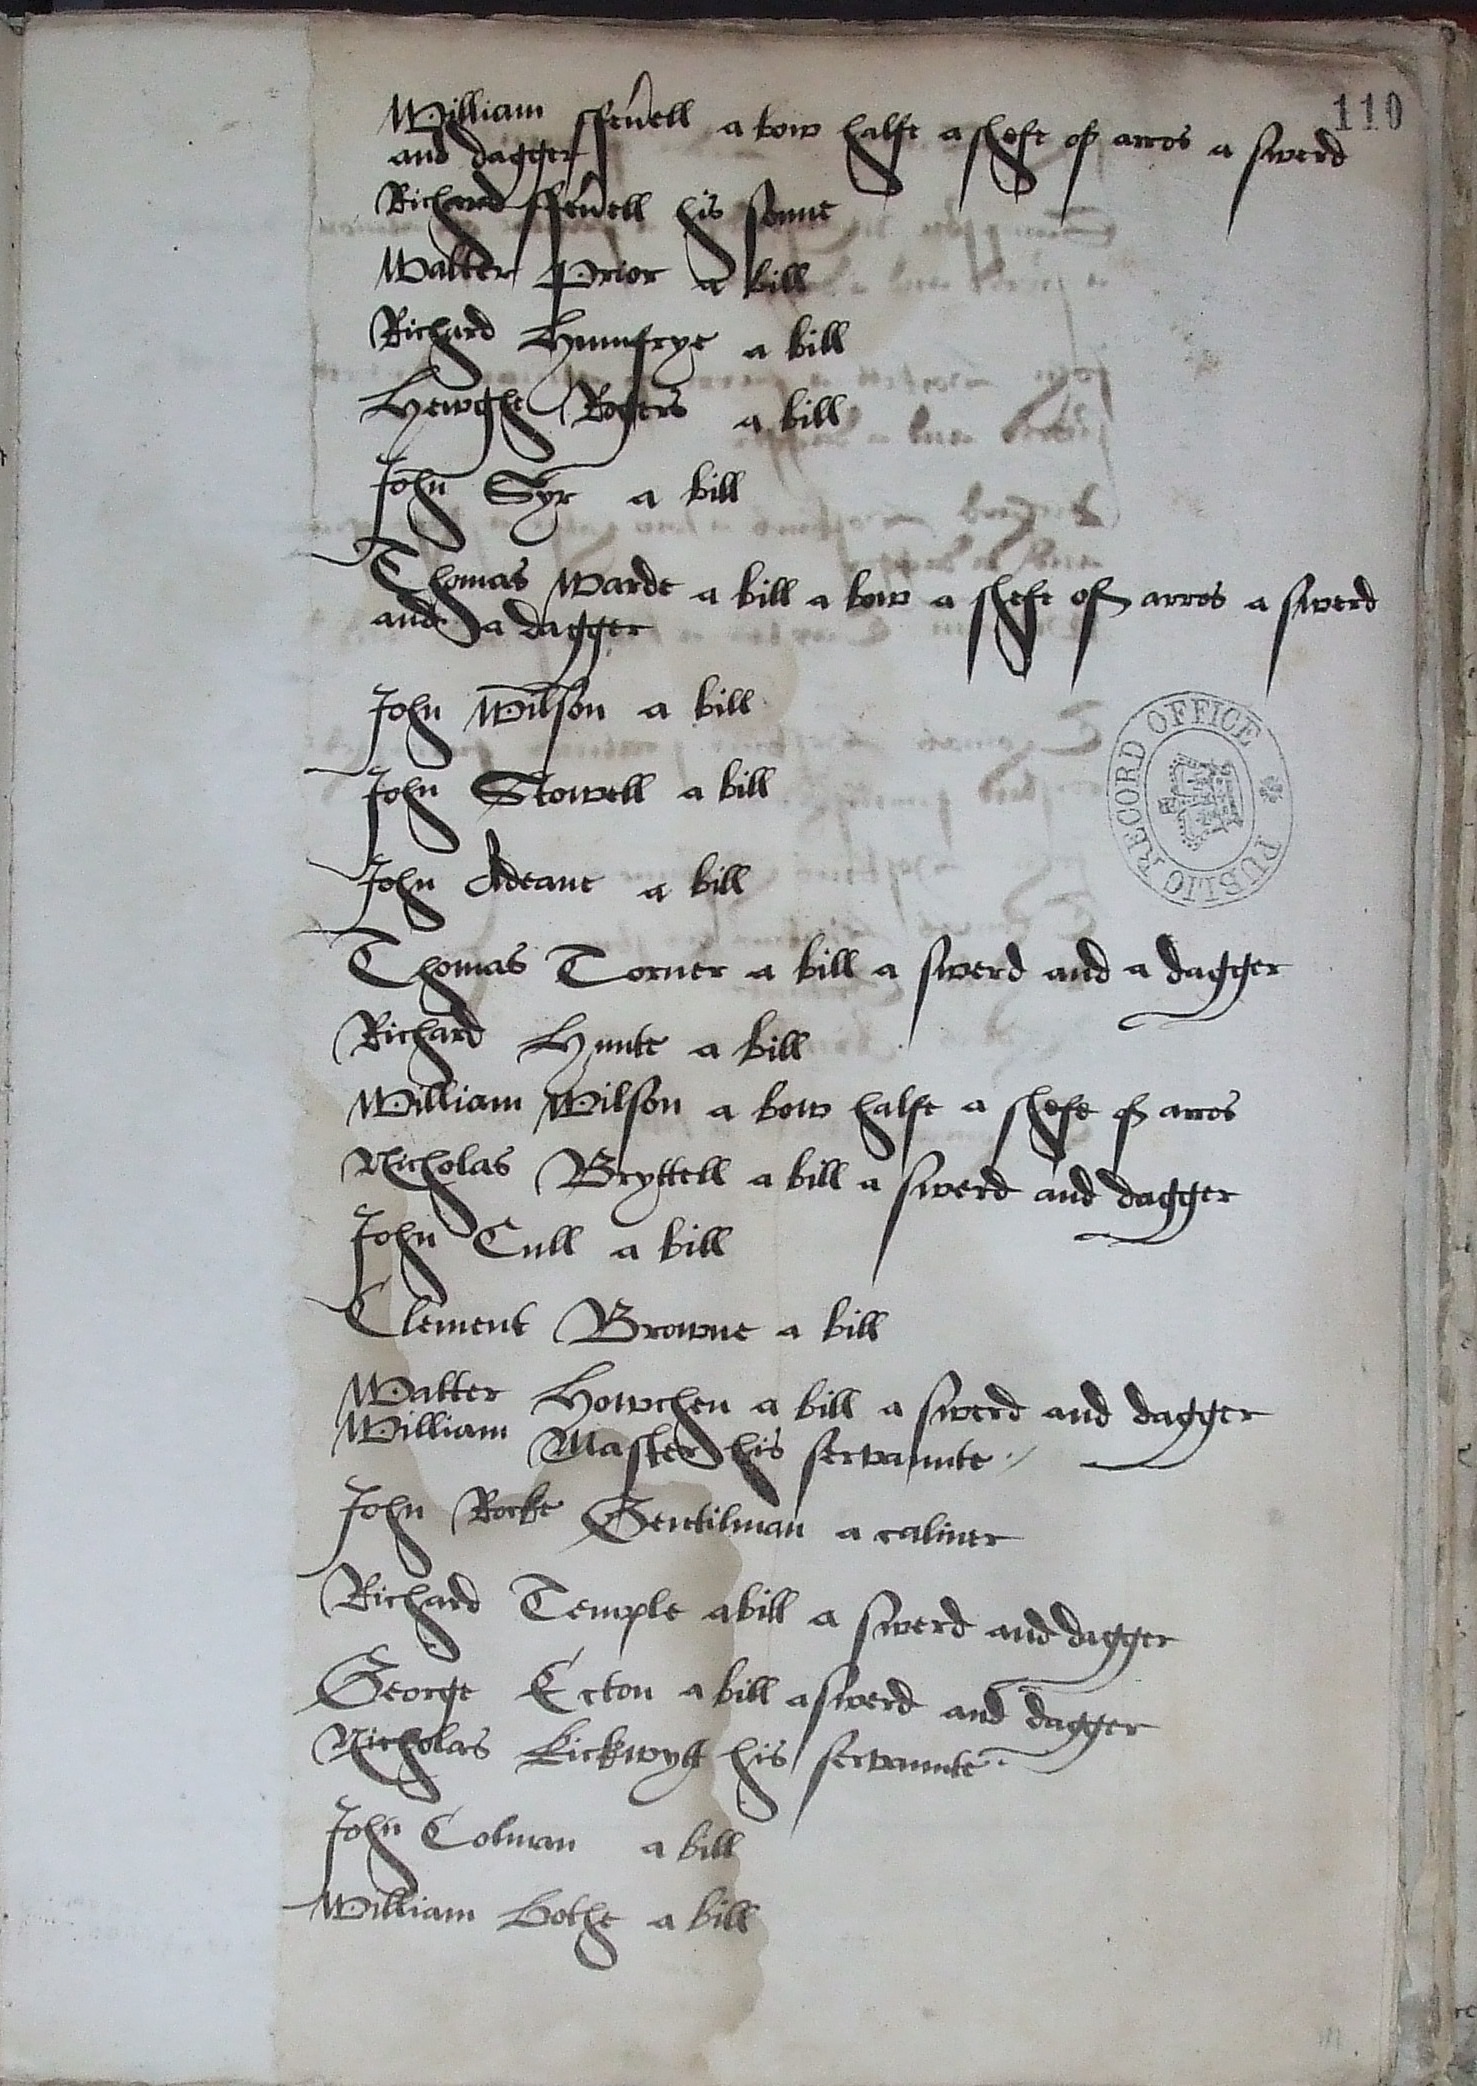 110
William ffenell a bow halfe a shefe of arros a swerd
and dagger
Richard ffenell his sonne
Walter Prior a bill
Richard Humfrye a bill
Hewghe Rogers a bill
John Syr a bill
Thomas Warde a bill a bow a shefe of arros a swerd
and a dagger
John Wilson a bill
John Stowell a bill
John Adeane a bill
Thomas Torner a bill a swerd and a dagger
Richard Hunte a bill
William Wilson a bow halfe a shefe of arros
Nicholas Bryttell a bill a swerd and dagger
John Cull a bill
Clement Browne a bill
Walter Howchen a bill a swerd and dagger
William Master his servaunte
John Rocke Gentilman a caliver
Richard Temple a bill a swerd and dagger
George Ecton a bill a swerd and dagger
Nicholas his servaunte
John Colman a bill
William Bothe a bill
PUBLIC RECORD OFFICE